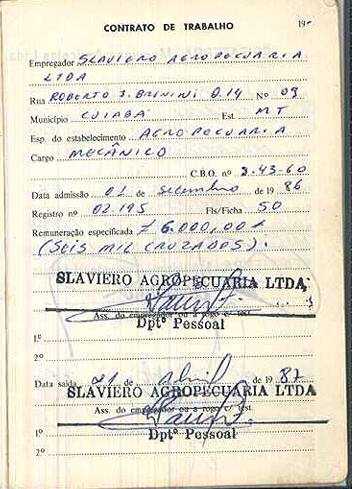 CONTRATO DE TRABALHO 19
Empregador SLAVIERO AGROPECUARIA
LTDA
Rua ROBERTO J. BRININI Q.14 Nº 09
Município CUIABÁ Est. MT
Esp. do estabelecimento AGROPECUARIA
Cargo MECÂNICO
C.B.O. nº 8.43-60
Data admissão 01 de Setembro de 19 86
Registro nº 02.195 Fls/Ficha 50
Remuneração especificada 6.000,00
(SEIS MIL CRUZADOS).
SLAVIERO AGROPECUÁRIA LTDA,
Ass. do empregador ou a rogo c/ test.
Dptº Pessoal
1º
2º
Data saída 21 de Abril de 19 87
SLAVIERO AGROPECUÁRIA LTDA
Ass. do empregador ou a rogo c/ test.
1º Dptº Pessoal
2º